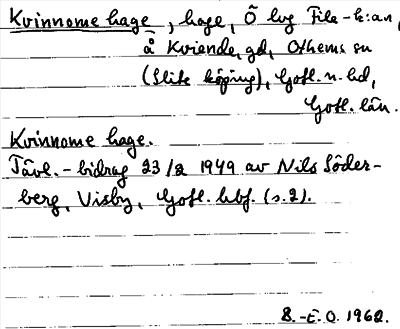 Kvinnome hage, hage, Ö lvg File-k:an,
å Kviende, gd, Othems sn
(Slite köping), Gotl. n. hd,
Gotl. län.
Kvinnome hage.
Tävl.-bidrag 23/2 1949 av Nils Söder-
berg, Visby, Gotl. hbf. (s.2).
B.-E.O. 1962.